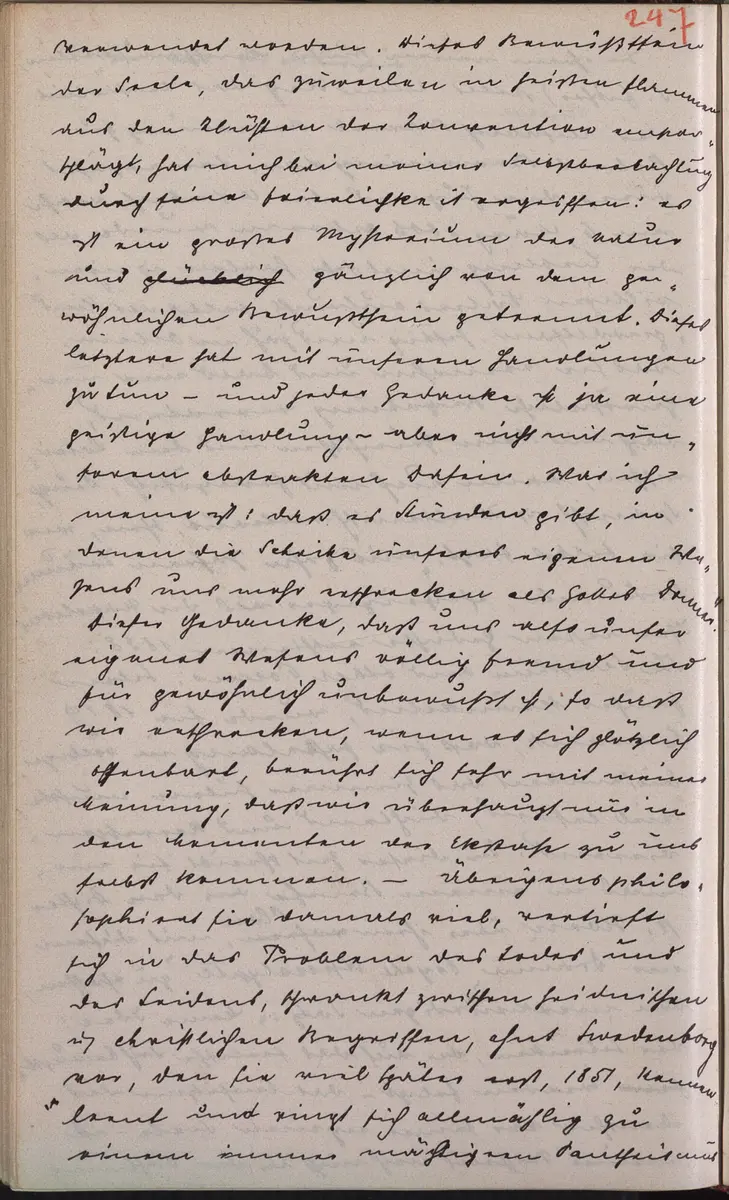 247
verwendet worden. Dieses Bewußtsein
der Seele, das zuweilen in heißen Flammen
aus den Klüften der Konvention empor-
schlägt, hat mich bei meiner Selbstbeobachtung
durch seine Feierlichkeit ergriffen: es
ist ein großes Mysterium der Natur
und glücklich gänzlich von dem ge-
wöhnlichen Bewußtsein getrennt. Dieses
letztere hat mit unseren Handlungen
zu tun – und jeder Gedanke ist ja eine
geistige Handlung – aber nicht mit un-
serem abstrakten Dasein. Was ich
meine ist: daß es Stunden gibt, in
denen die Schreie unseres eigenen We-
sens uns mehr erschrecken als Gottes Donner."
Dieser Gedanke, daß uns also unser
eigenes Wesens völlig fremd und
für gewöhnlich unbewußt ist, so daß
wir erschrecken, wenn es sich plötzlich
offenbart, berührt sich sehr mit meiner
Meinung, daß wir überhaupt nur in
den Momenten der Ekstase zu uns
selbst kommen. – Übrigens philo-
sophiert sie damals viel, vertieft
sich in das Problem des Todes und
des Leidens, schwankt zwischen heidnischen
u. christlichen Begriffen, ahnt Swedenborg
vor, den sie viel später erst, 1851, kennen
lernt und ringt sich allmählig zu
einem immer mächtigeren Pantheismus